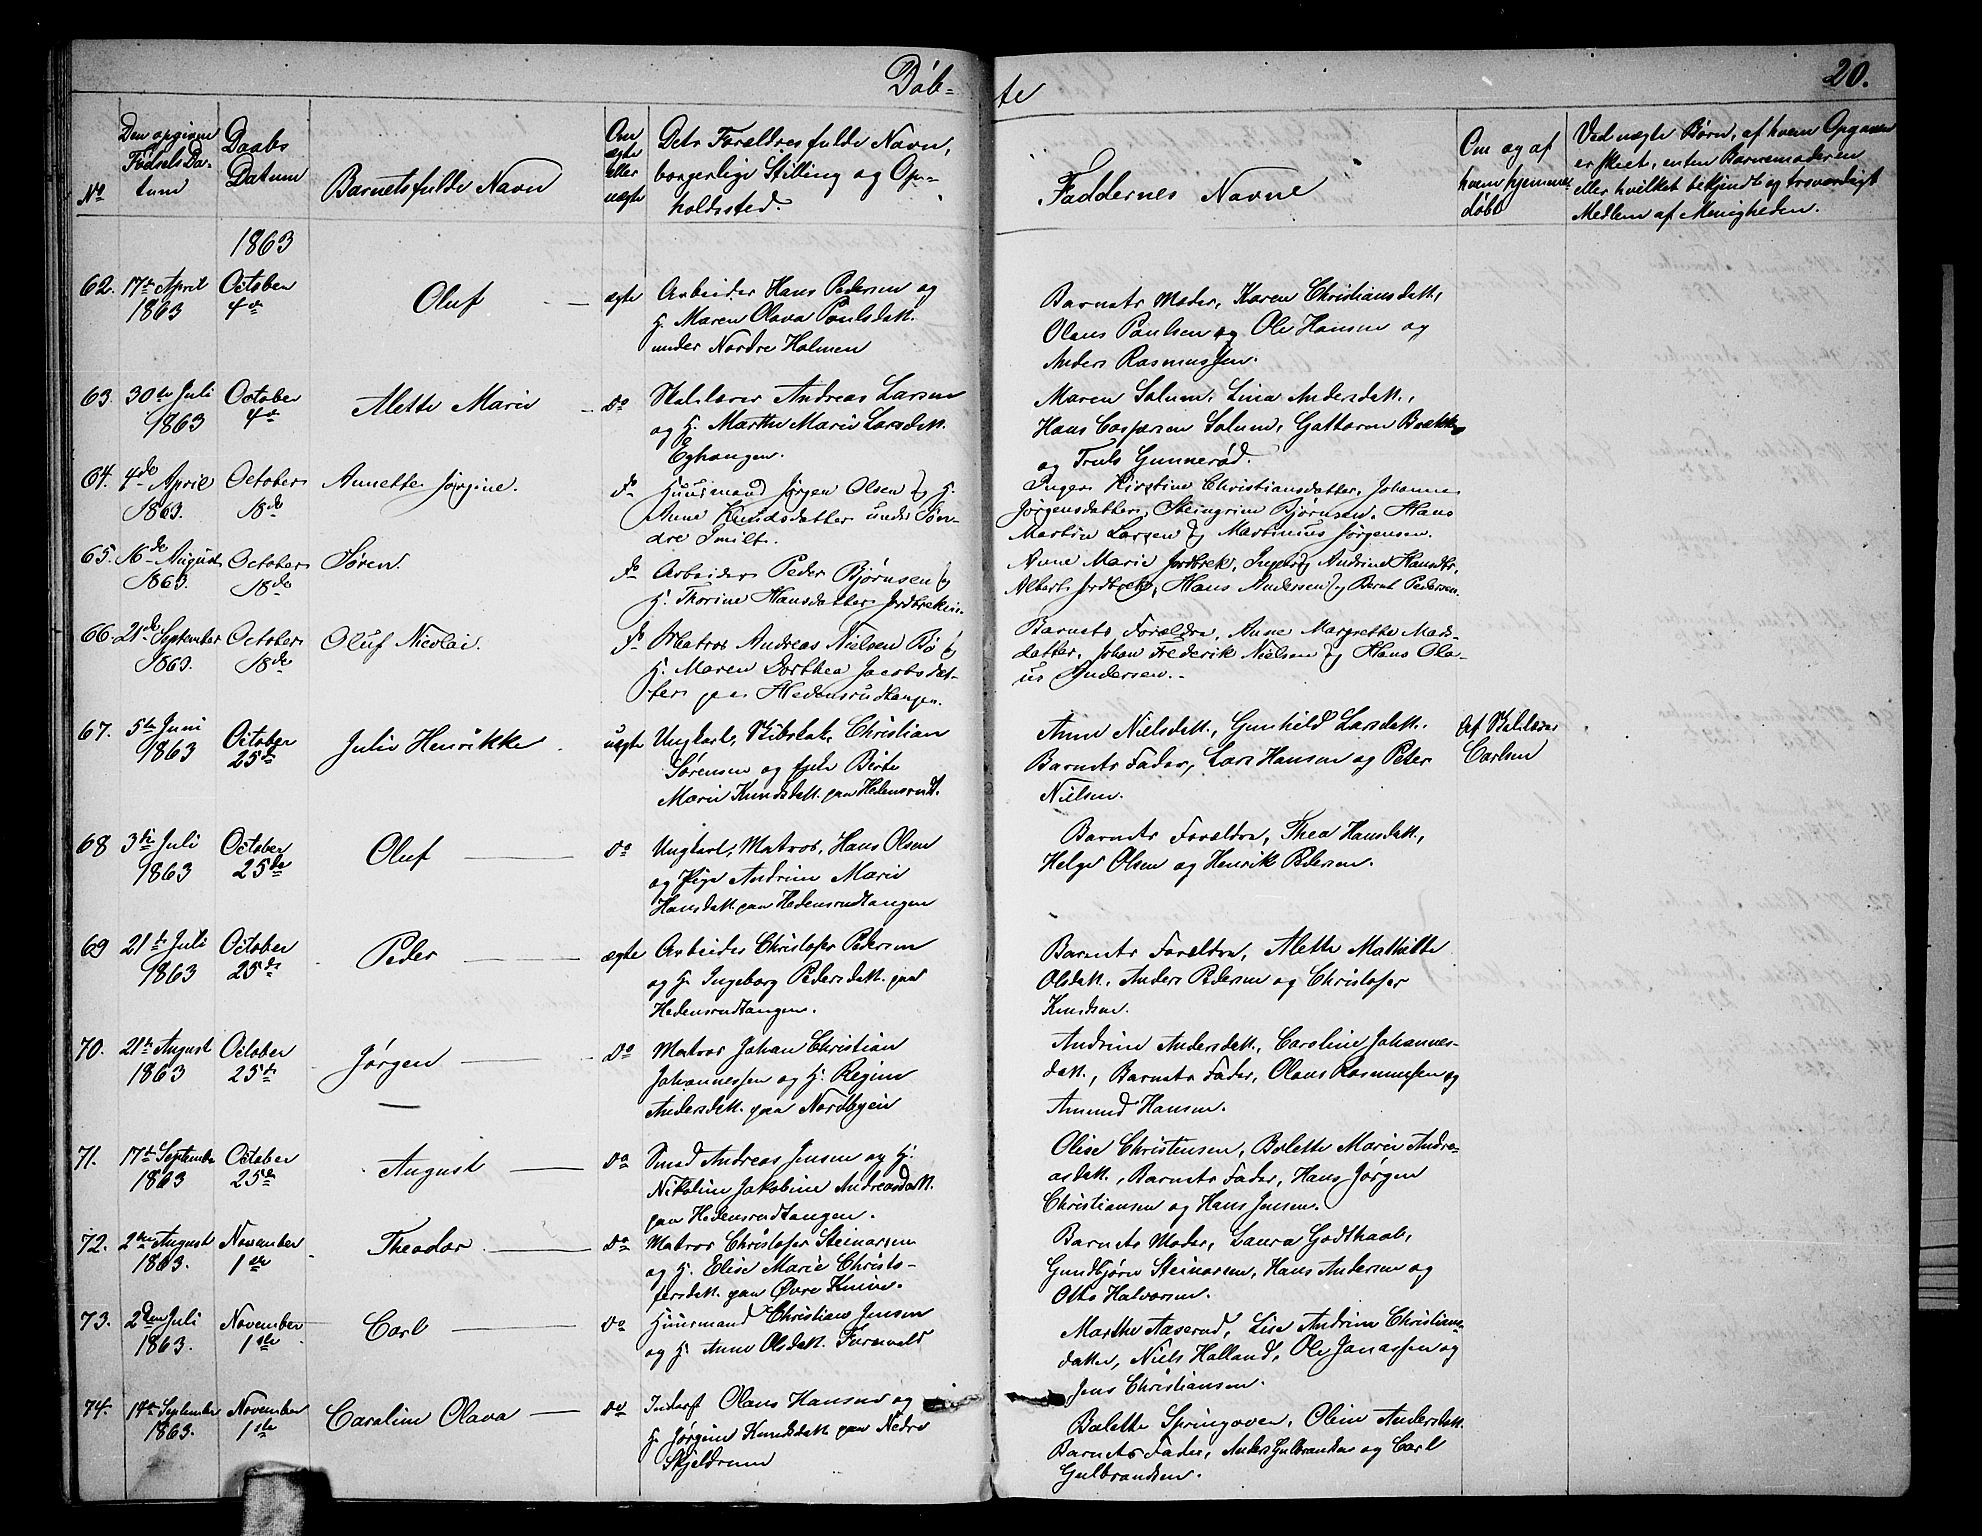 Døb-
te
20.
No
Den opgivne Fødsels Datum
Daabs Datum
Barnets fulde Navn
Om ægte eller uægte
Dets Forældres fulde Navn, borgerlige Stilling og Opholdssted.
Faddernes Navne
Om og af hvem hjemmedøbt
Ved uægte Børn, af hvem Opgaven er skeet, enten Barnemoderen eller hvilket bekjendt og troværdigt Medlem af Menigheden.
1863
62. 17de April 1863 October 4de Oluf — ægte
Arbeider Hans Pedersen og
H. Maren Olava Poulsdatt.
under Nordre Holmen
Barnets Moder, Karen Christiansdatt,
Olaus Paulsen og Ole Hansen og
Anders Rasmussen.
63. 30te Juli 1863 October 4de Alette Marie — do
Skolelærer Andreas Larsen
og H. Marthe Marie Larsdatt.
Eghaugen.
Maren Solum, Lina Andersdatt.,
Hans Caspersen Solum, Guttorm Bække
og Truls Gunnerød.
64. 4de April 1863. October 18de Annette Jørgine. do
Huusmand Jørgen Olsen og H.
Anne Knudsdatter under Søn-
dre Smilt.
Inger Kirstine Christiansdatter, Johanne
Jørgensdatter, Steingrim Bjørnsen, Hans
Martin Larsen og Martinius Jørgensen.
65. 16de August 1863. October 18de Søren. do
Arbeider Peder Bjørnsen og
H. Thorine Hansdatter Jordbrekin.
Anne Marie Jordbrek, Ingeb. og Andrine Hansdtr,
Albert Jordbrek, Hans Andersen og Bernt Pedersen.
66. 21de September 1863. October 18de Oluf Nicolai. do
Matros Andreas Nielsen Bø og
H. Maren Dorthea Jacobsdat-
ter paa Hedensrudtangen.
Barnets Forældre, Anne Margrethe Mads-
datter, Johan Frederik Nielsen og Hans Ola-
us Andersen.
67. 5te Juni 1863 October 25de Julie Henrikke uægte
Ungkarl, Christian
Sørensen og Pige Birte
Marie Knudsdatt. paa Hedensrudt.
Anne Nielsdatt., Gunhild Larsdatt.
Barnets Fader, Lars Hansen og Peter
Nielsen.
Af Skolelærer
Carlsen
68 3die Juli 1863 October 25de Oluf — do
Ungkarl, Matros, Hans Olsen
og Pige Andrine Marie
Hansdatt. paa Hedensrudtangen
Barnets Forældre, Thea Hansdatt,
Helge Olsen og Henrik Pedersen.
69 21de Juli 1863 October 25de Peder — ægte
Arbeider Christofer Pedersen
og H. Ingeborg Pedersdatt. paa
Hedensrudtangen.
Barnets Forældre, Alette Mathilde
Olsdatt. Anders Pedersen og Christofer
Knudsen.
70. 21de August 1863 October 25de Jørgen — do
Matros Johan Christian
Johannessen og H. Regine
Andersdatt. paa Nordbyeie
Andrine Andersdatt., Caroline Johannes-
datt., Barnets Fader, Olaus Rasmussen og
Amund Hansen.
71. 17de September 1863 October 25de August — do
Smed Andreas Jensen og H.
Nikoline Jakobine Andreasdatt.
paa Hedensrudtangen.
Olise Christensen, Bolette Marie Andre-
asdatt., Barnets Fader, Hans Jørgen
Christiansen og Hans Jensen.
72. 2den August 1863. November 1ste Theodor — do
Matros Christofer Steinarsen
og H. Elise Marie Christo-
fersdatt. paa Øvre Knive.
Barnets Moder, Laura Godthaab,
Gundbjørn Steinarsen, Hans Andersen og
Otto Halvorsen.
73. 2den Juli 1863. November 1ste Carl — do
Huusmand Christian Jensen
og H. Anne Olsdatt.
Marthe Aaserud, Lise Andrine Christians-
datter, Niels Holland, Ole Jonassen og
Jens Christiansen.
74. 14de September 1863. November 1ste Caroline Olava — do
Inderst Olaus Hansen og
H. Jørgine Knudsdatt. paa Nedre
Skjeldrum
Bolette Springoven, Oline Andersdatt.
Barnets Fader, Anders Gulbrandsen og Carl
Gulbrandsen.